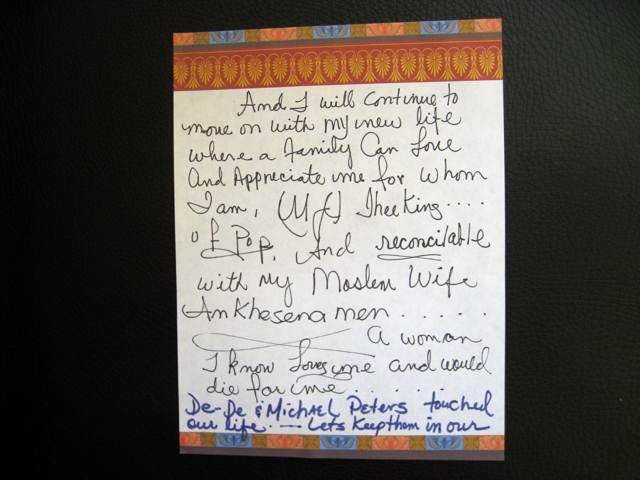 And I will Continue to
move on with my new life
where a family Can Love
And Appreciate me for whom
I am, (MJ) Thee King....
of Pop. And reconcilable
with my Moslem Wife
Ankhesenamen......
A woman
I know Loves me and would
die for me......
De-De & MICHAEL Peters touched
our life.--- Lets Keep them in our